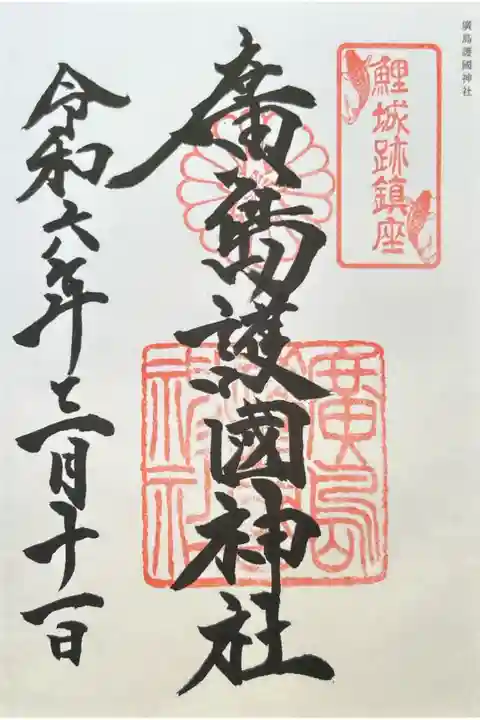 廣島護國神社
鯉城跡鎮座
廣島護國神社
令和六年十二月十一日
廣島
神社